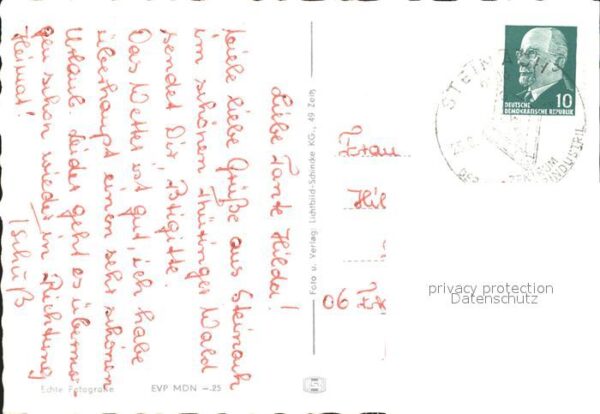 Liebe Tante Hilda!
Viele liebe Grüße aus Steinach
im schönen Thüringer Wald
sendet Dir Brigitte.
Das Wetter ist gut, ich habe
überhaupt einen sehr schönen
Urlaub. Leider geht es übermor-
gen schon wieder in Richtung
Heimat!
Tschüß
Echte Fotografie
EVP MDN —.25
Foto u. Verlag: Lichtbild-Schincke KG., 49 Zeitz
DEUTSCHE
DEMOKRATISCHE REPUBLIK
10
STEINACH
Frau
Hil
06
privacy protection
Datenschutz